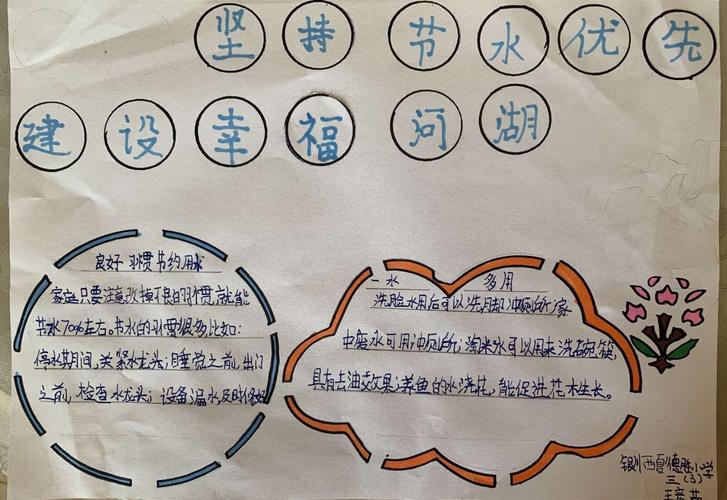 坚持 节水优先
建设幸福 河湖
良好习惯节约用水
家庭只要注意改掉不良的习惯,就能
节水70%左右。节水的习惯很多,比如:
停水期间,关紧水龙头;睡觉之前,出门
之前,检查水龙头;设备漏水,及时修好
一水 多用
洗脸水用后可以洗脚,冲厕所;家
中废水可用冲厕所;淘米水可以用来洗碗筷,
具有去油效果;养鱼的水浇花,能促进花木生长。
银川西夏德胜小学
三(3)